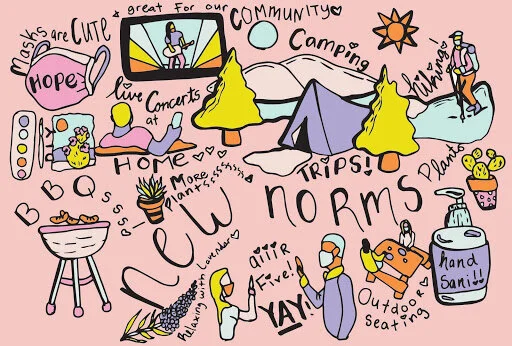 Masks are CUTE
& great for our
COMMUNITY
HOPE
live Concerts
at
HOME
Camping
TRIPS!
hiking!
Plants
More
plantsssssssssss
BBQsss!
new norms
Relaxing with lavendar
aiiir
Five!
YAY!
Outdoor
seating
hand
Sani!!